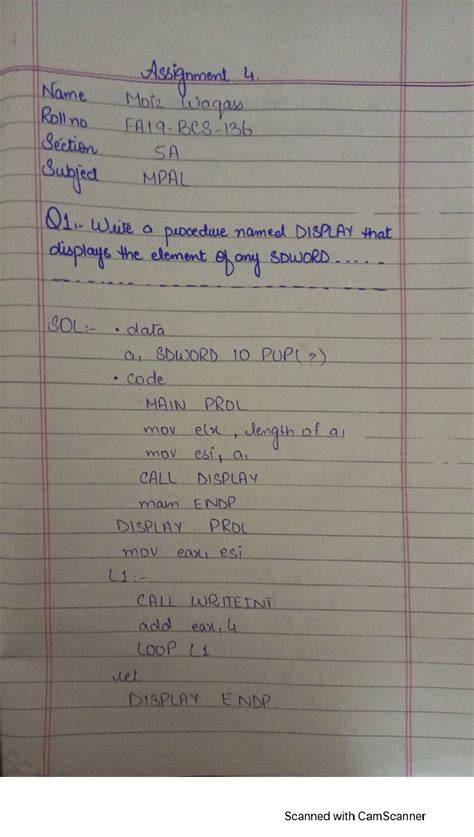 Assignment 4.
Name Moiz Waqass
Roll no FA19-BCS-136
Section 5A
Subject MPAL
Q1:- Write a procedure named DISPLAY that
displays the element of any SDWORD.....
SOL:- • data
a, SDWORD 10 PUP(?)
• code
MAIN PROL
mov elx, length of a,
mov esi, a,
CALL DISPLAY
main ENDP
DISPLAY PROL
mov eax, esi
L1:-
CALL WRITEINT
add eax, 4
LOOP L1
ret
DISPLAY ENDP
Scanned with CamScanner